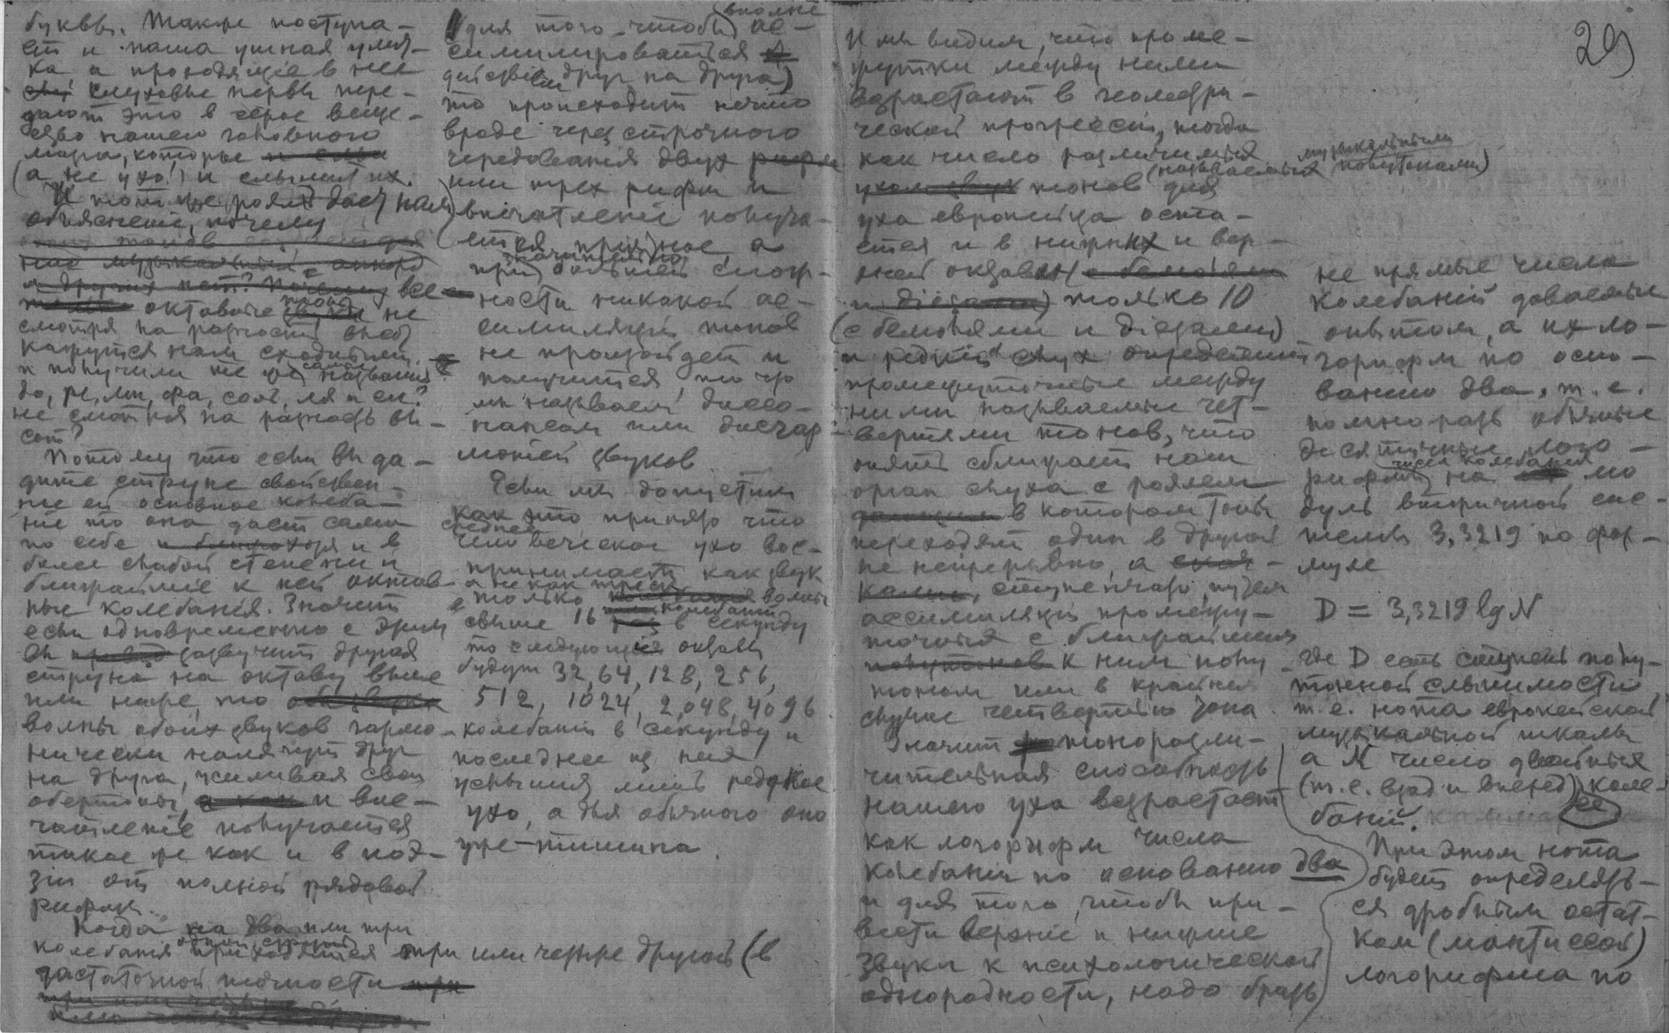 29
буквы. Также поступа-
ет и наша ушная улит-
ка, а проходящие в нее
слуховые нервы пере-
дают это в серое веще-
ство нашего головного
мозга, которые
(а не ухо!) и слышит их.
И тот же рояль даст нам
объяснение, почему
все
октавные не
смотря на разность высот
кажутся нам сходными
и получили те же самые названия
до, ре, ми, фа, соль, ля и си?
не смотря на разность вы-
сот?
Потому что если вы да-
дите струне свойствен-
ное ей основное колеба-
ние то она дает сама
по себе и в
более слабой степени и
ближайшие к ней октав-
ные колебания. Значит
если одновременно с этим
вы зазвучит другая
струна на октаву выше
или ниже, то
волны обоих звуков гармо-
нически налягут друг
на друга, усиливая свои
обертоны, и впе-
чатление получается
такое же как и в поэ-
зии от полной рядовой
рифмы.
Когда на два или три
колебания одной струны приходятся три или четыре другой (в
достаточной точности
для того чтобы вполне ас-
симилироваться
действием друг на друга)
то происходит нечто
вроде через строчного
чередования двух
или трех рифм и
впечатление получа-
ется приятное, а
при значительно большей слож-
ности никакой ас-
симиляции тонов
не произойдет и
получится, то что
мы называем диссо-
нансом или дисгар-
монией звуков.
Если мы допустим
как это принято что
среднее человеческое ухо вос-
принимает как звук
а не как треск только волны
свыше 16 колебаний в секунду
то следующие октавы
будут 32, 64, 128, 256,
512, 1024, 2,048, 4096
колебаний в секунду и
последнее из них
услышит лишь редкое
ухо, а для обычного оно
уже - тишина.
И мы видим, что проме-
жутки между ними
возрастают в геометри-
ческой прогрессии, тогда
как число различимых
тонов (называемых музыкальными полутонами) для
уха европейца оста-
ется и в нижних и вер-
хней октавах
только 10
(с бемолями и диезами)
и редкий слух определит
промежуточные между
ними называемые чет-
вертями тонов, что
опять сближает наш
орган слуха с роялем
в котором тоны
переходят один в другой
не непрерывно, а
ступенчато, путем
ассимиляции промежу-
точных с ближайшим
к ним полу-
тоном или в крайнем
случае четвертью тона.
Значит тоноразли-
чительная способность
нашего уха возрастает
как логарифм числа
колебаний по основанию два
и для того, чтобы при-
вести верхние и нижние
звуки к психологической
однородности, надо брать
не прямые числа
колебаний даваемые
опытом, а их ло-
гарифм по осно-
ванию два, т.е.
помножать обычные
десятичные лога-
рифмы числа колебаний на мо
дуль вторичной сис-
темы 3,3219 по фор-
муле
D = 3,3219 lg N
где D есть ступень полу-
тонной слышимости,
т.е. нота европейской
музыкальной шкалы
а N число двойных
(т.е. взад и вперед) коле-
баний.
При этом нота
будет определять-
ся дробным остат-
ком (мантиссой)
логарифма по